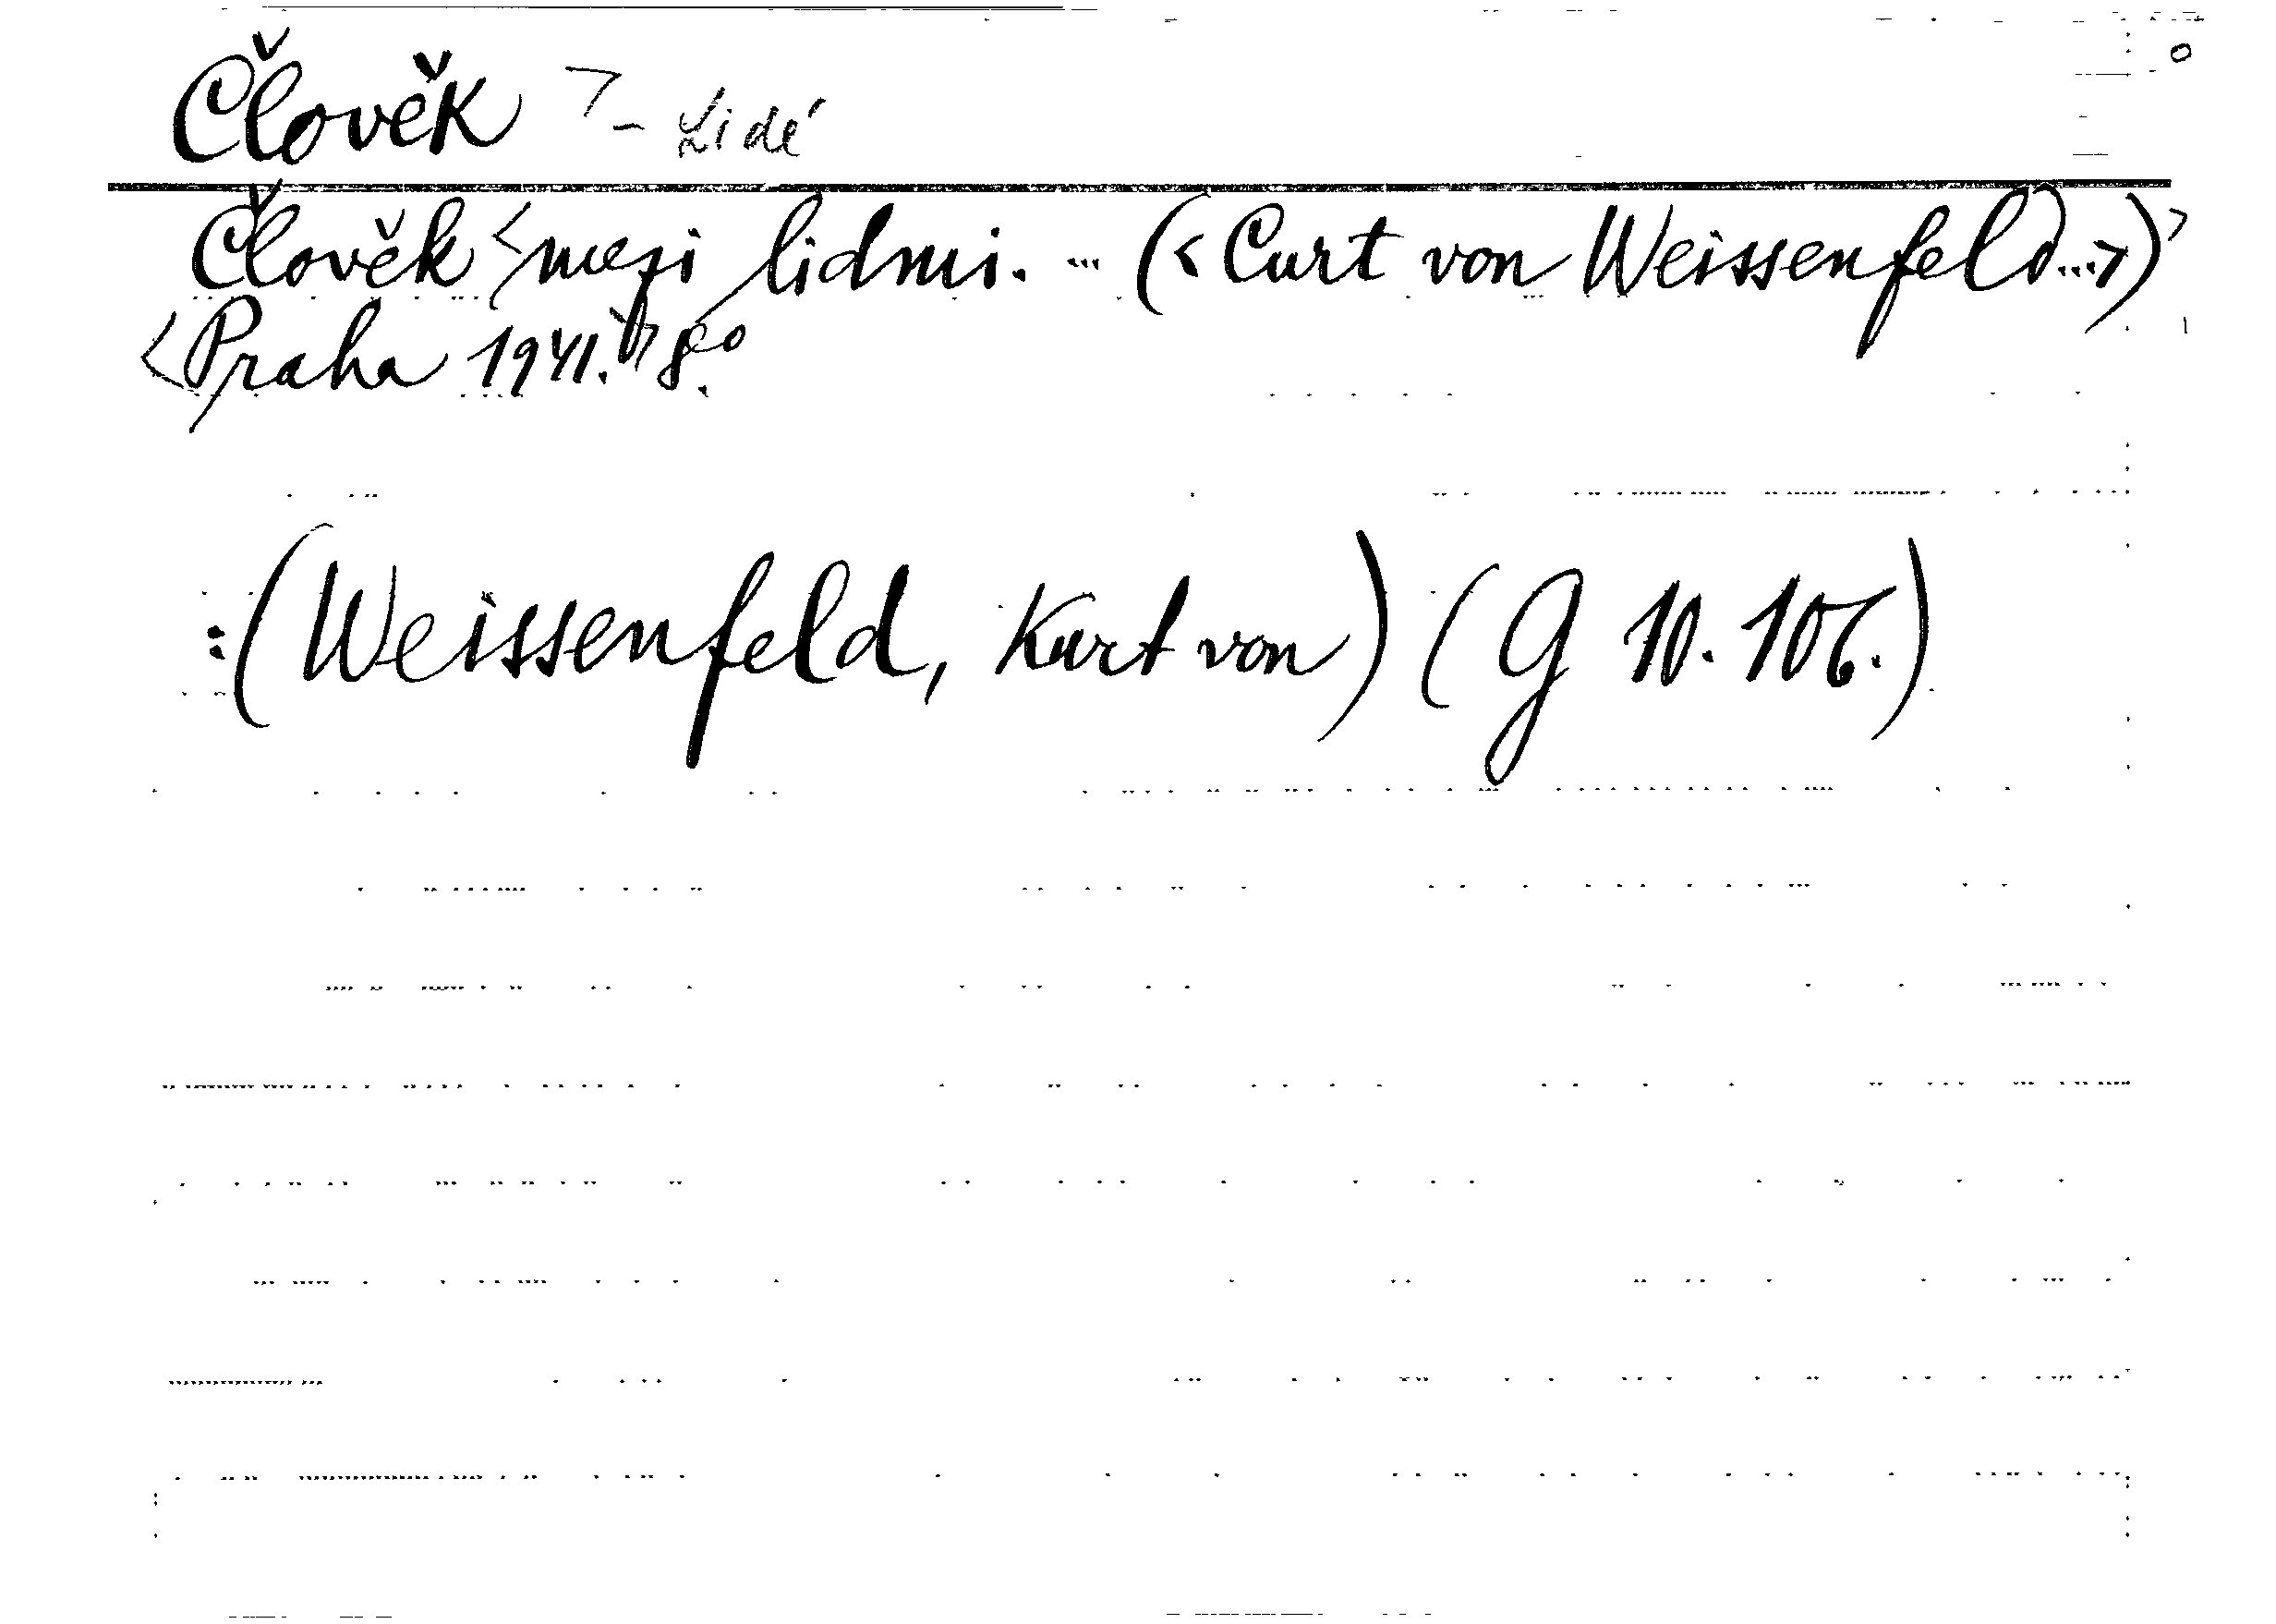 Člověk > - Lidé
Člověk <mezi lidmi. ... (<Curt von Weissenfeld...>)>
<Praha 1941.> 8°.
:(Weissenfeld, Kurt von) (G 10.106.)